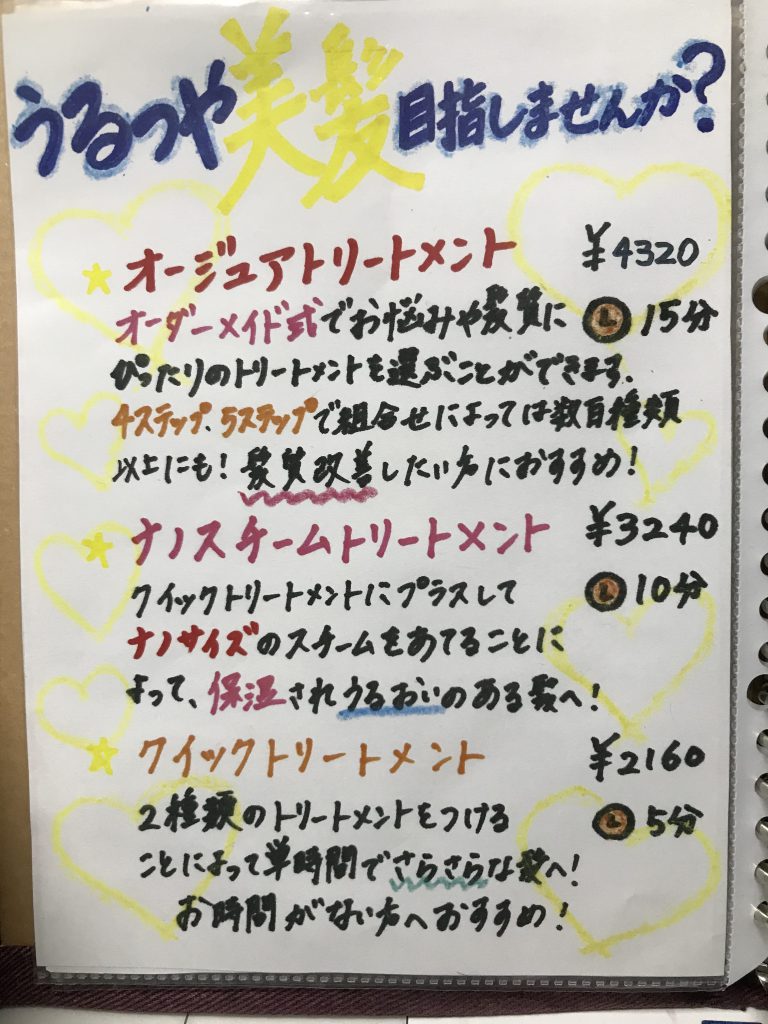 うるつや美髪目指しませんか?
★オージュアトリートメント ¥4320
オーダーメイド式でお悩みや髪質に 15分
ぴったりのトリートメントを選ぶことができます。
4ステップ、5ステップで組合せによっては数百種類
以上にも!髪質改善したい方におすすめ!
★ナノスチームトリートメント ¥3240
クイックトリートメントにプラスして 10分
ナノサイズのスチームをあてることに
よって、保湿されうるおいのある髪へ!
★クイックトリートメント ¥2160
2種類のトリートメントをつける 5分
ことによって単時間でさらさらな髪へ!
お時間がない方へおすすめ!